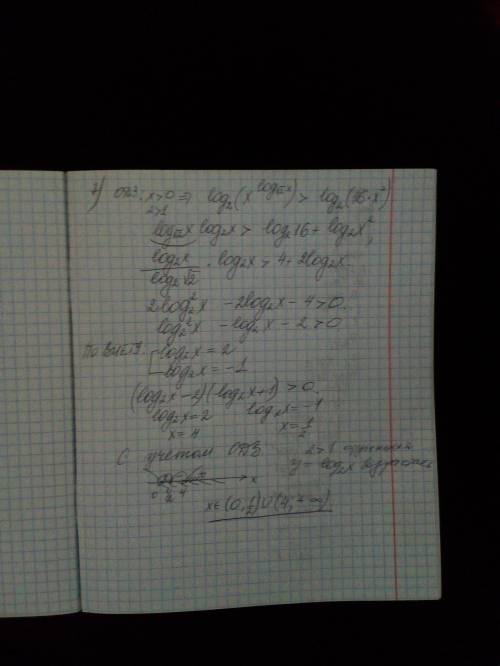 2) ОДЗ: x>0 ⇒ log₂(x^(log_√2 x)) > log₂(16·x²)
2>1
log_√2 x · log₂x > log₂16 + log₂x²,
log₂x / log₂√2 · log₂x > 4 + 2log₂x.
2log₂²x - 2log₂x - 4 > 0.
log₂²x - log₂x - 2 > 0
По Виета: log₂x = 2
log₂x = -1
(log₂x - 2)(log₂x + 1) > 0
log₂x = 2 log₂x = -1
x = 4 x = 1/2
С учетом ОДЗ: 2>1 функция
y = log₂x возрастает
x
0 1/2 4
x∈(0; 1/2)∪(4; +∞)